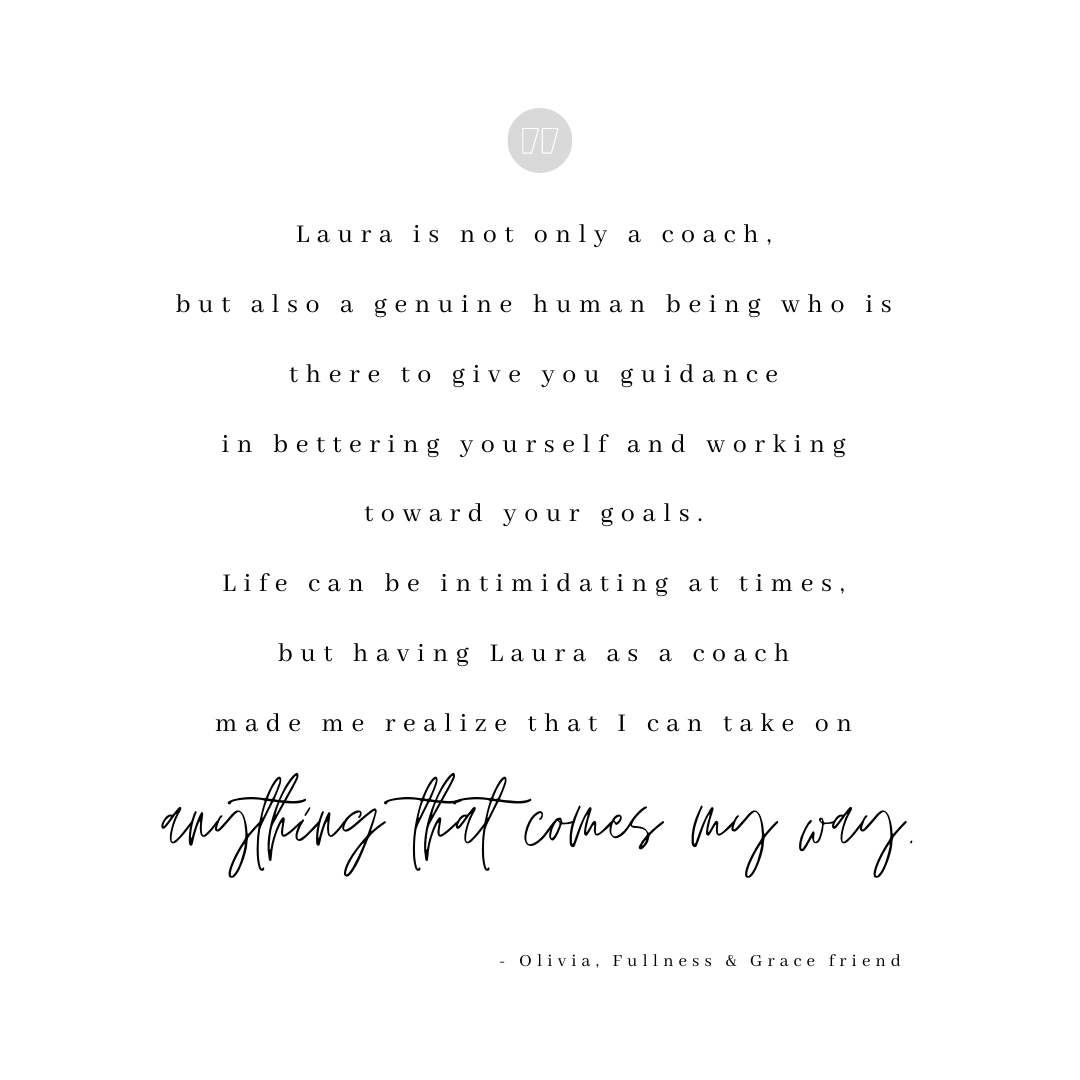 Laura is not only a coach,
but also a genuine human being who is
there to give you guidance
in bettering yourself and working
toward your goals.
Life can be intimidating at times,
but having Laura as a coach
made me realize that I can take on
anything that comes my way.
- Olivia, Fullness & Grace friend